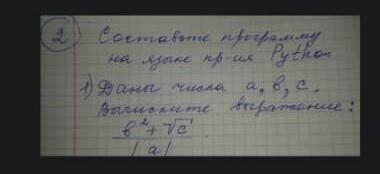 2 Составьте программу
на языке пр-ия Python
1) Даны числа a, b, c.
Вычислите выражение:
b² + √c
|a|